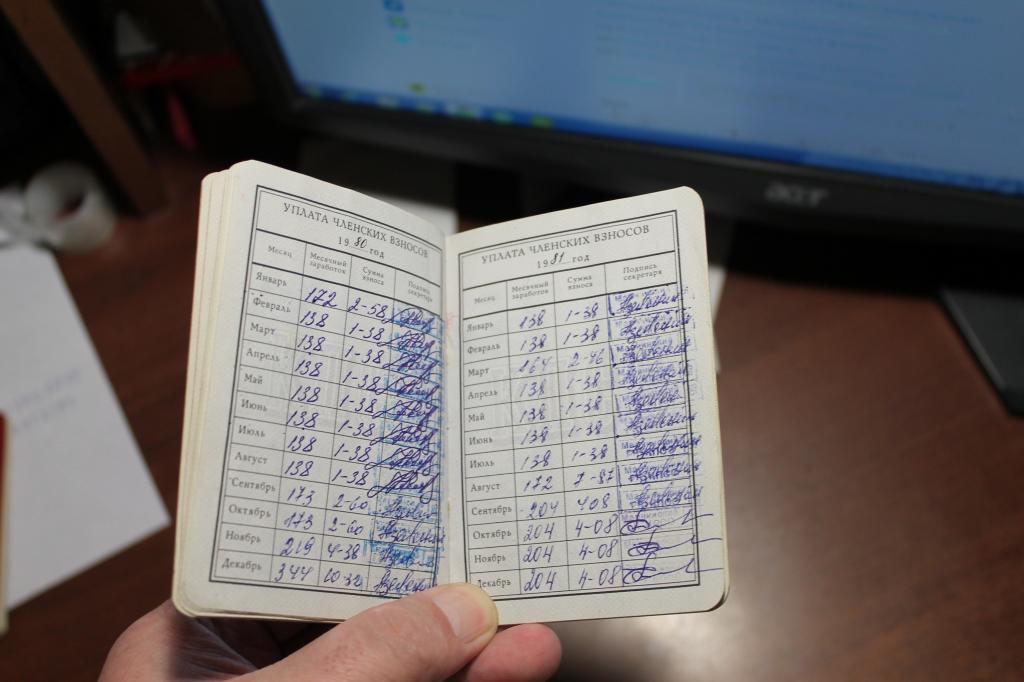 acer
УПЛАТА ЧЛЕНСКИХ ВЗНОСОВ
1980 год
Месяц Месячный заработок Сумма взноса Подпись секретаря
Январь 172 2-58
Февраль 138 1-38
Март 138 1-38
Апрель 138 1-38
Май 138 1-38
Июнь 138 1-38
Июль 138 1-38
Август 138 1-38
Сентябрь 173 2-60
Октябрь 173 2-60
Ноябрь 219 4-38
Декабрь 344 10-32
УПЛАТА ЧЛЕНСКИХ ВЗНОСОВ
1981 год
Месяц Месячный заработок Сумма взноса Подпись секретаря
Январь 138 1-38
Февраль 138 1-38
Март 164 2-46
Апрель 138 1-38
Май 138 1-38
Июнь 138 1-38
Июль 138 1-38
Август 172 7-87
Сентябрь 204 408
Октябрь 204 4-08
Ноябрь 204 4-08
Декабрь 204 4-08